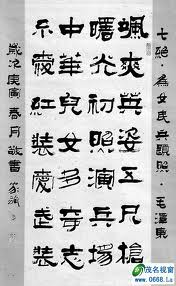 七絕·為女民兵題照·毛澤東
颯爽英姿五尺槍
曙光初照演兵場
中華兒女多奇志
不愛紅裝愛武裝
歲次庚寅春月敬書
茂名视窗
www.0668.La